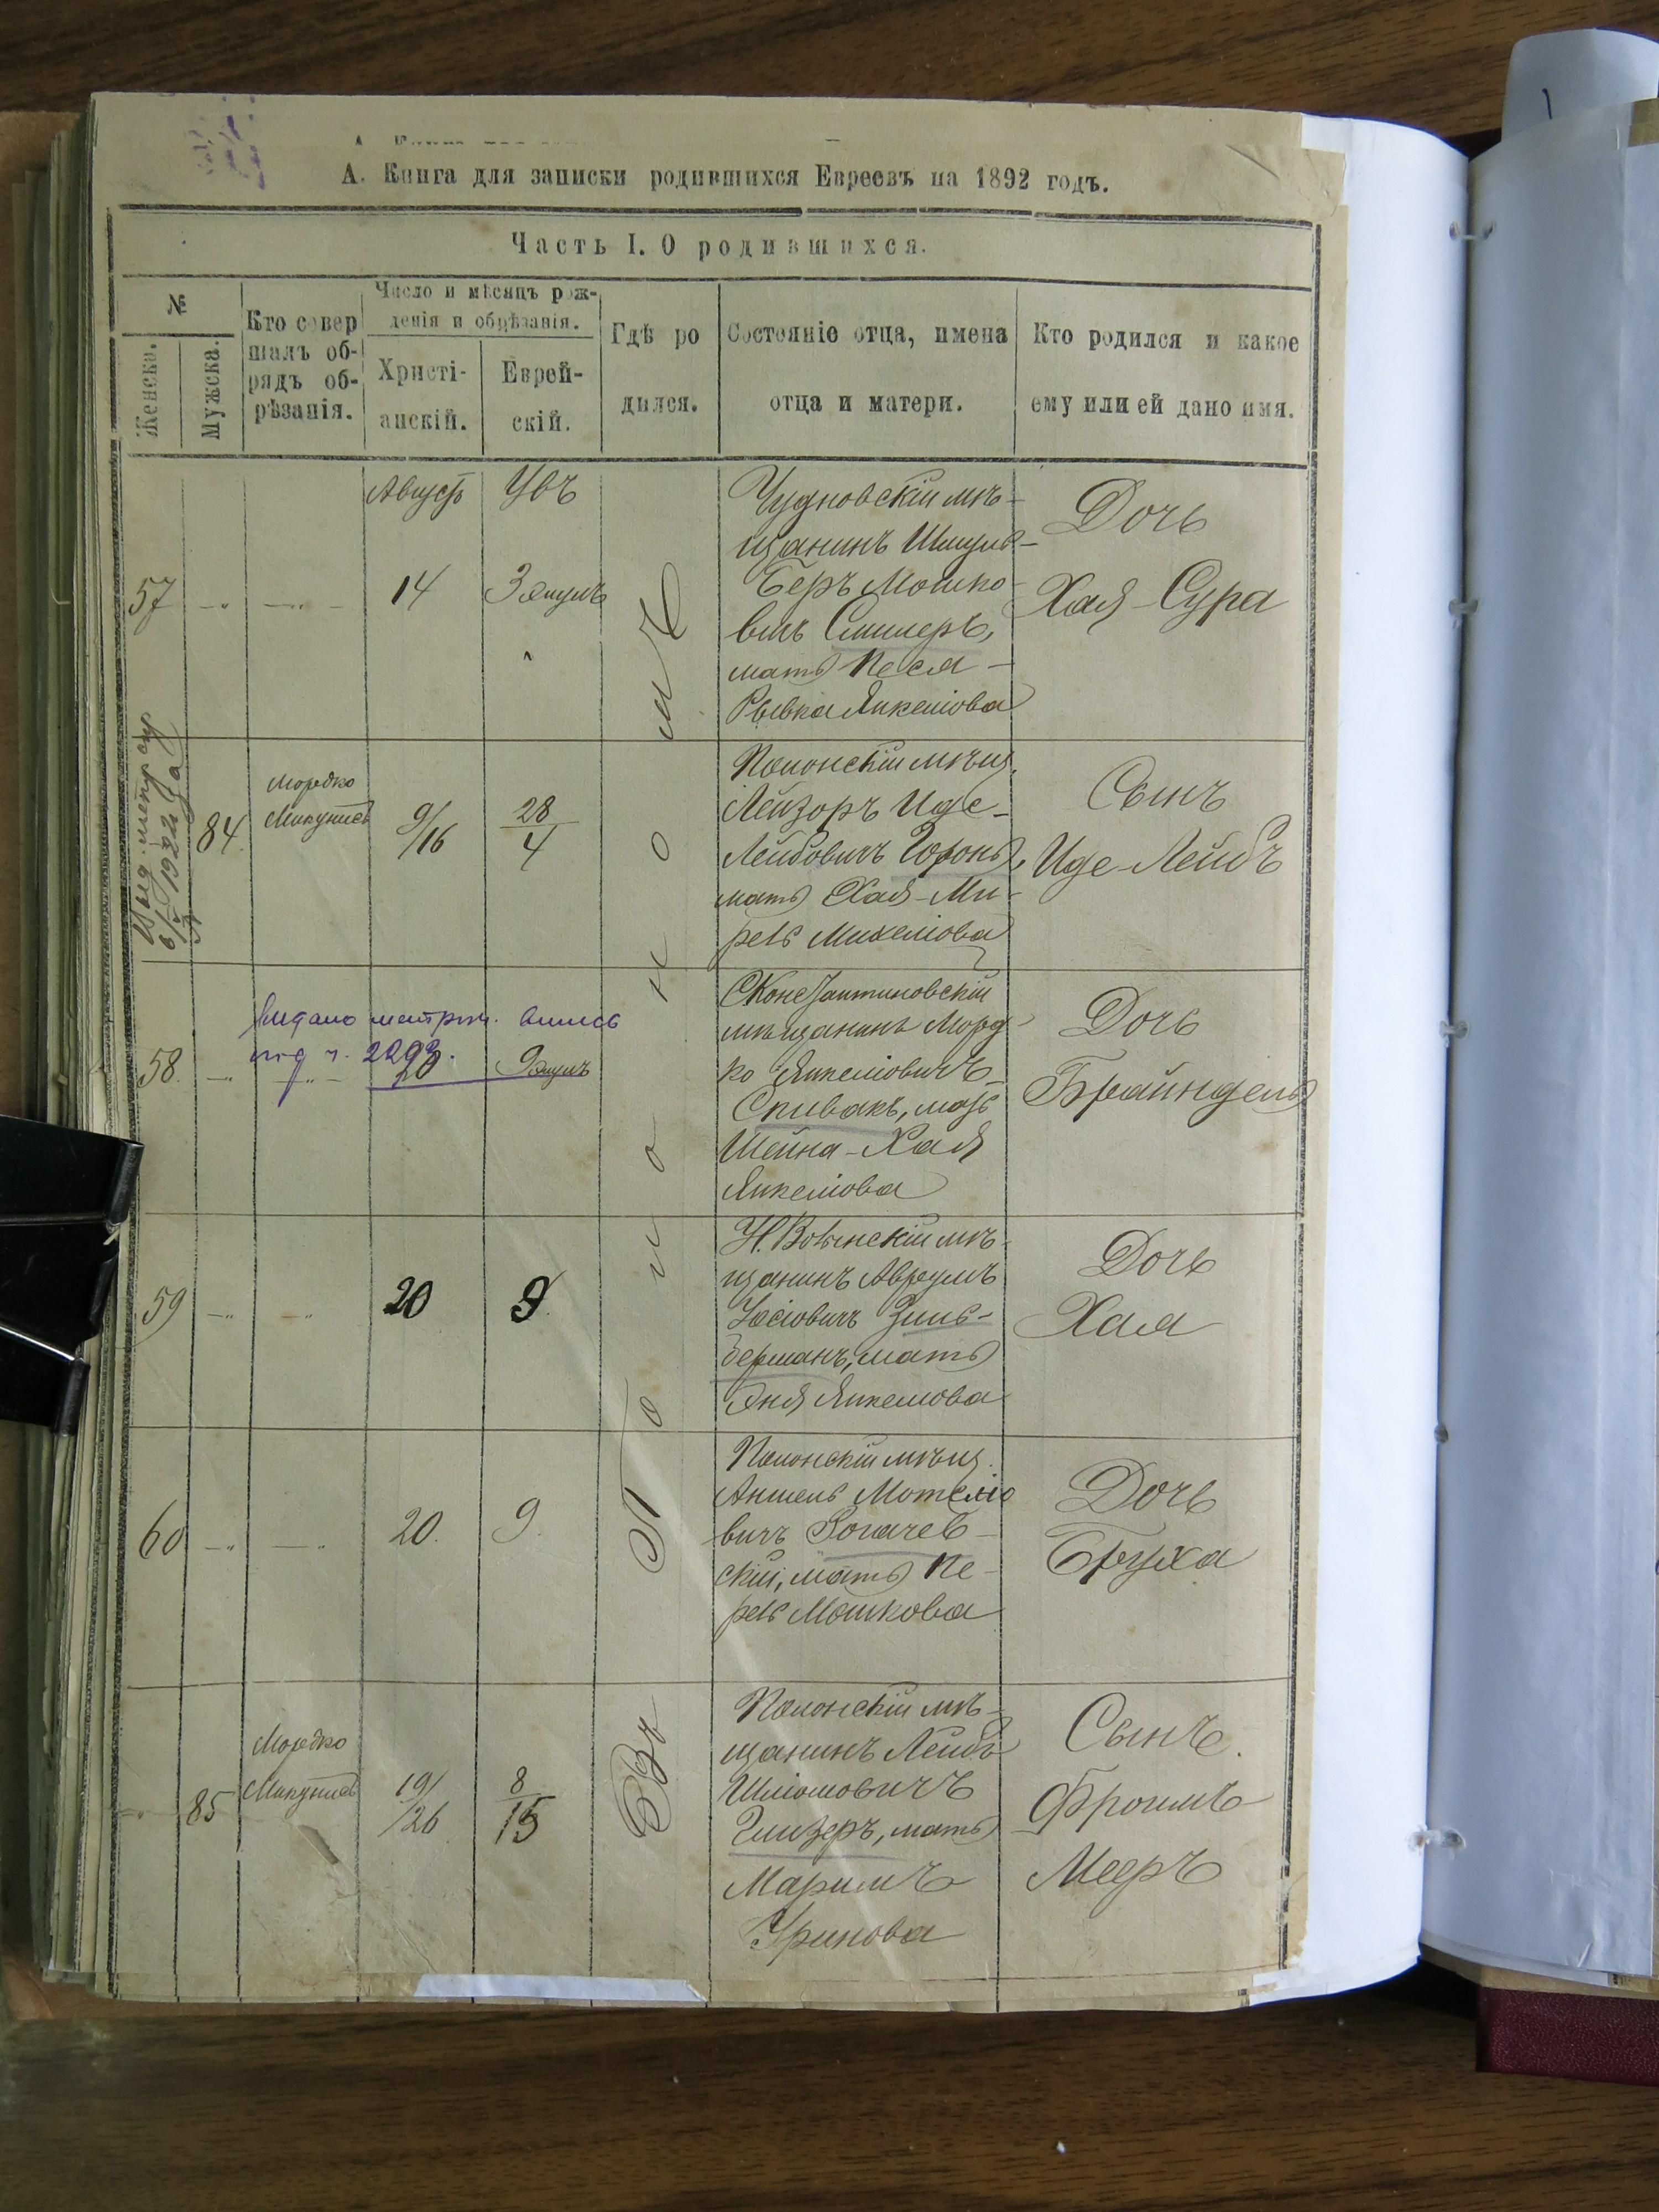 А. Книга для записки родившихся Евреевъ на 1892 годъ.
Часть I. О родившихся.
№
Женска.
Мужска.
Кто совер
шалъ об-
рядъ об-
рѣзанія.
Число и мѣсяцъ рож-
денія и обрѣзанія.
Христі-
анскій.
Еврей-
скій.
Гдѣ ро
дился.
Состояніе отца, имена
отца и матери.
Кто родился и какое
ему или ей дано имя.
Въ Полонномъ
57
Августъ
14
Увъ
3 элулъ
Чудновскій мѣ-
щанинъ Шмуль-
Беръ Мошко-
вичъ
мать Песя-
Рывка Янкеліова
Дочь
Хая-Сура
1922
84
Мордко
9/16
28
4
Полонскій мѣщ.
Лейзоръ Иде-
Лейбовичъ
мать Хая-Ми-
рель Михеліова
Сынъ
Иде-Лейбъ
видано метрич. випись
під ч. 2293.
58
20
9 элулъ
СКонстантиновскій
мѣщанинъ Морд-
ко Янкеліовичъ
Спивакъ, мать
Шейна-Хая
Янкеліова
Дочь
Брайндель
59
20
9
Н.Волынскій мѣ-
щанинъ Аврумъ
Іосіовичъ Зиль-
берманъ, мать
Эня Янкеліова
Дочь
Хая
60
20.
9.
Полонскій мѣщ.
Аншель Мотеліо
вичъ Рогачев-
скій, мать Пе-
рель Мошкова
Дочь
Бруха
85
Мордко
19/26
8
15
Полонскій мѣ-
щанинъ Лейбъ
Шліомовичъ
Глизеръ, мать
Маримъ
Срулова
Сынъ.
Фроимъ
Мееръ